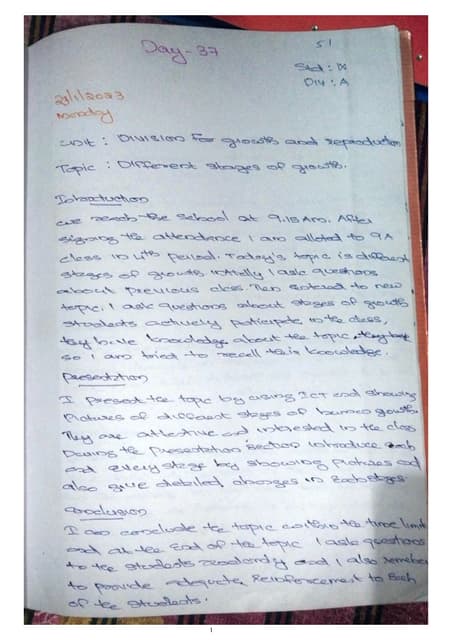 Day - 37
51
Std : IX
Div : A
23/1/2023
Monday
Unit : Division for growth and reproduction
Topic : Different stages of growth.
Introduction
We reach the school at 9.15 Am. After
signing the attendence I am alloted to 9A
class in 4th period. Today's topic is different
stages of growth. initially I ask questions
about previous class. Then entered to new
topic. I ask questions about stages of growth
students actively participate in the class,
they have knowledge about the topic,
so I am tried to recall their knowledge.
Presentation
I present the topic by using ICT and showing
Pictures of different stages of human growth
They are attentive and intrested in the class
During the Presentation section introduce each
and every stage by showing Pictures and
also give detailed changes in Each stages.
Conclusion
I am conclude the topic within the time limit
and at the End of the topic I ask questions
to the students randomly and I also remember
to provide adequate Reinforcement to Each
of the students.
1